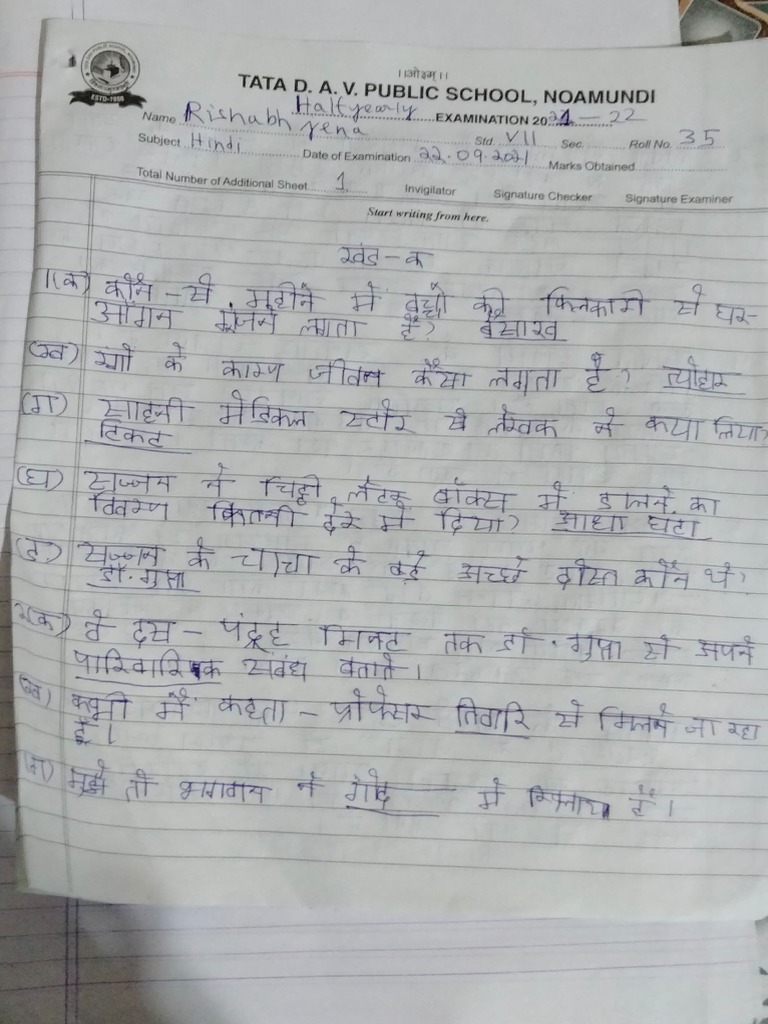 ।।ओ३म्।।
TATA D. A. V. PUBLIC SCHOOL, NOAMUNDI
ESTD-1956
Half yearly EXAMINATION 2021-22
Name Rishabh jena Std. VII Sec. Roll No. 35
Subject Hindi Date of Examination 22.09.2021 Marks Obtained
Total Number of Additional Sheet 1 Invigilator Signature Checker Signature Examiner
Start writing from here.
खंड-क
1(क) कौन-से महीने में बच्चो की किलकारी से घर-
आँगन गूंजने लगता हैं? बैसाख
(ख) रंगों के कारण जीवन कैसा लगता है? त्योहार
(ग) साहनी मेडिकल स्टोर से लेखक ने कया लिया?
टिकट
(घ) सज्जन ने चिट्ठी लेटर बॉक्स में डालने का
विवरण कितनी देर में दिया? आधा घंटा
(ङ) सज्जन के चाचा के बड़े अच्छे दोस्त कौन थे?
डॉ. गुप्ता
2(क) वे दस-पंद्रह मिनट तक डॉ. गुप्ता से अपने
पारिवारिक संबंध बताते।
(ख) कभी मैं कहता - प्रोफेसर तिवारि से मिलने जा रहा
हूँ।
(ग) मुझे तो भगवान ने गोद में हैं।